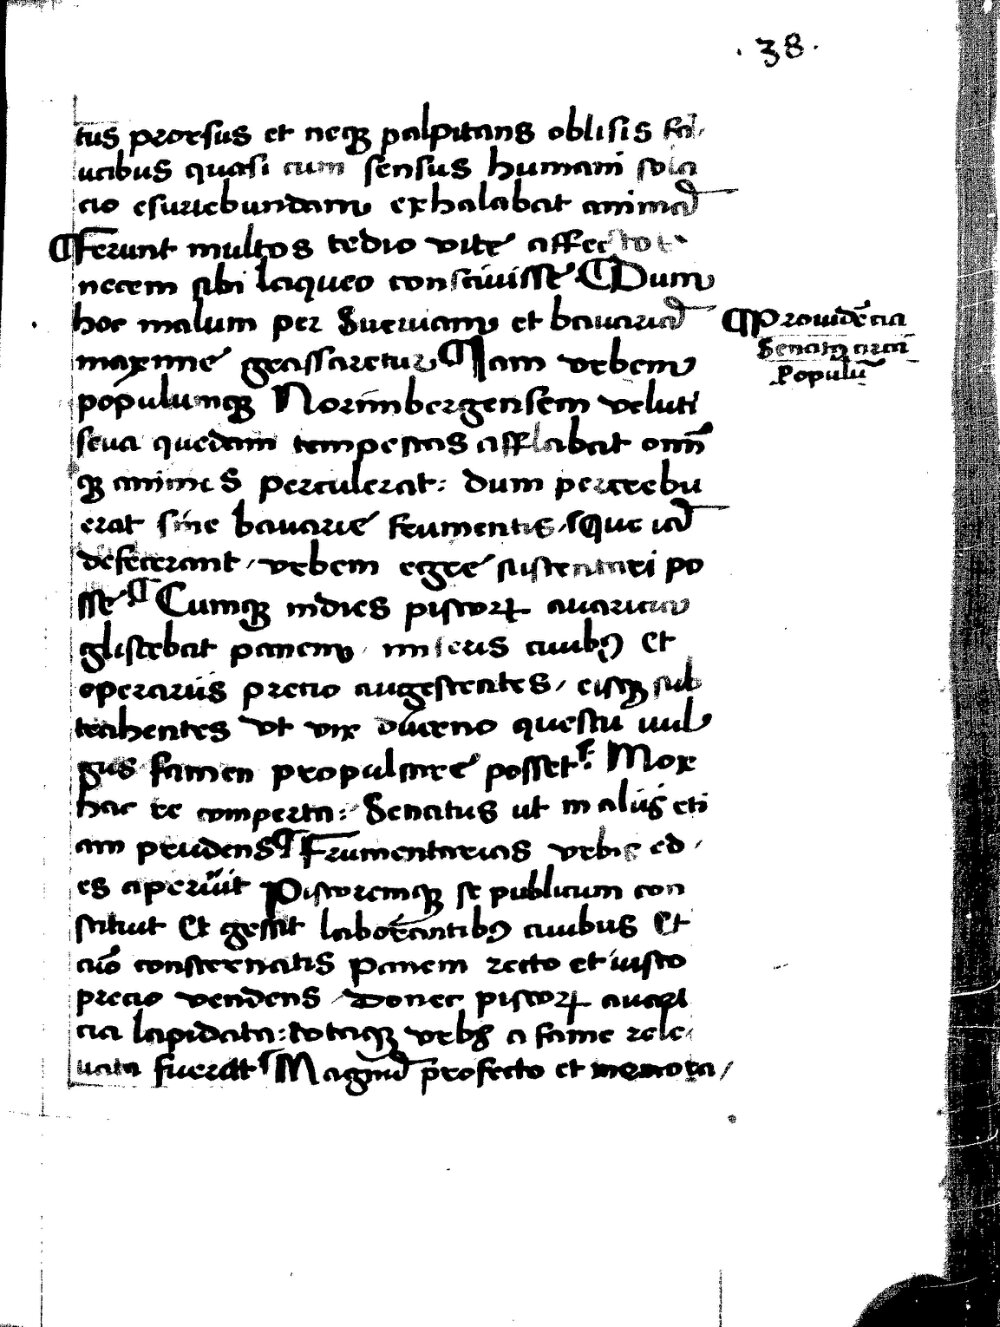 .38.
tus prorsus et neq3 palpitans oblisis fa/
ucibus quasi cum sensus humani sola
cio esuriebundam exhalabat animā
¶Ferunt multos tedio vite affectos
necem sibi laqueo conscivisse ¶Dum
hoc malum per Sueviam et bavariā
maxime grassaretur ¶Iam vrbem
populumq3 Norimbergensem veluti
seva quedam tempestas afflabat omī
q3 animes perculerat: dum percrebu
erat sine bavarie frumentis, que iā
defecerant, vrbem egre sustentari po
sse ¶Cumq3 indies pistorꝝ avaricia
glistebat panem, miseris civibꝰ et
operariis precio augestrates, eisq3 sub
trahentes vt vix diurno questu vul
gus famen propulsare posset: Mox
hac re comperta: Senatus ut in aliis eti
am prudens ¶Frumentarias vrbis ed,
es aperuit Pistoremq3 se publicum con
stituit Et gessit laborantibꝰ civibus Et
consternatis panem recto et iusto
precio vendens, Donec pistorꝝ avari
cia lapidata: totaq3 vrbs a fame rele
uata fuerat Magnū profecto et memora/
¶Providēcia
Senatꝰ circa
Populū